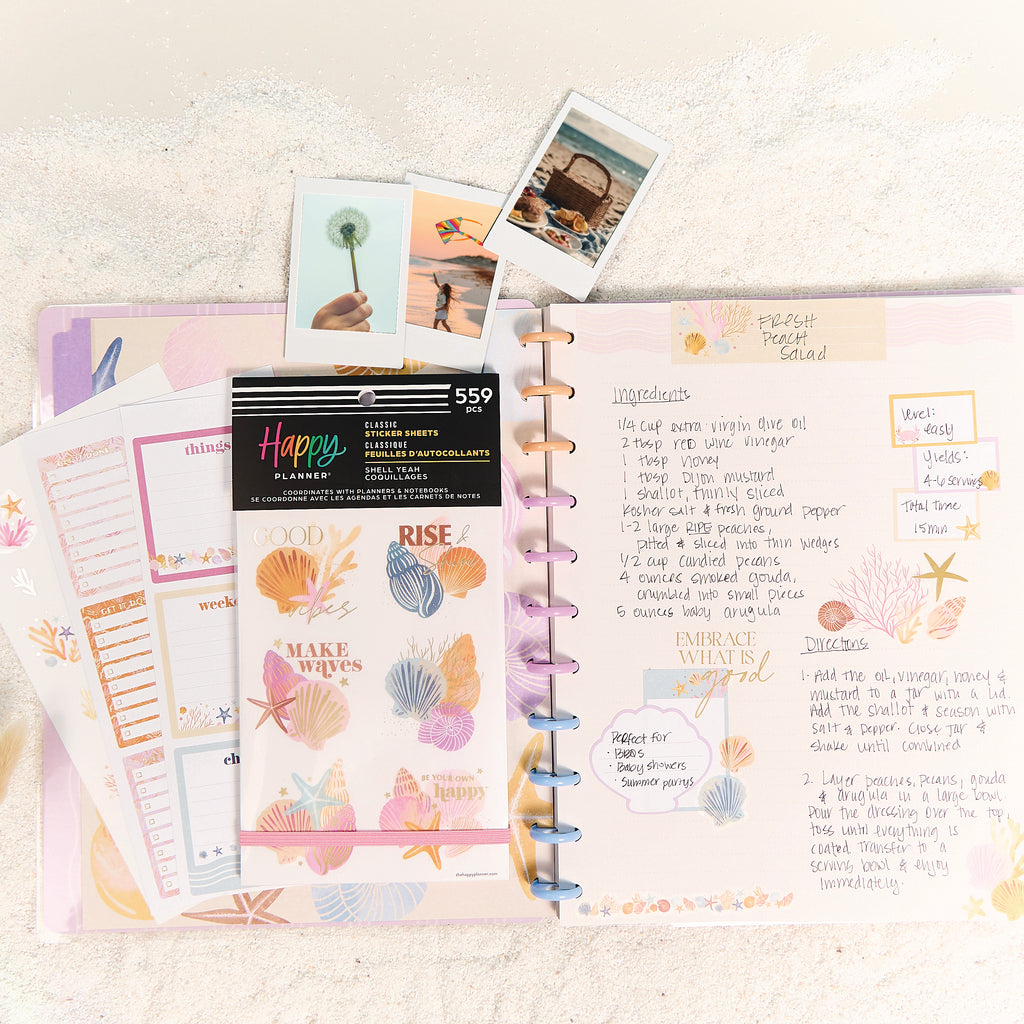 559
pcs
Happy
PLANNER®
CLASSIC
STICKER SHEETS
CLASSIQUE
FEUILLES D'AUTOCOLLANTS
SHELL YEAH
COQUILLAGES
COORDINATES WITH PLANNERS & NOTEBOOKS
SE COORDONNE AVEC LES AGENDAS ET LES CARNETS DE NOTES
GOOD
vibes
RISE &
Shine
MAKE
waves
BE YOUR OWN
happy
thehappyplanner.com
things
GET IT DONE
week
ch
FRESH
Peach
Salad
Ingredients
1/4 cup extra virgin olive oil
2 tbsp red wine vinegar
1 tbsp honey
1 tbsp Dijon mustard
1 shallot, thinly sliced
Kosher salt & fresh ground pepper
1-2 large RIPE peaches,
pitted & sliced into thin wedges
1/2 cup candied pecans
4 ounces smoked gouda,
crumbled into small pieces
5 ounces baby arugula
level:
easy
Yields:
4-6 servings
Total Time
15min
EMBRACE
WHAT IS
good
Perfect for
· BBQS
· Baby showers
· Summer partys
Directions
1. Add the oil, vinegar, honey &
mustard to a jar with a lid.
Add the shallot & season with
salt & pepper. Close jar &
shake until combined
2. Layer peaches, pecans, gouda
& arugula in a large bowl.
Pour the dressing over the top,
toss until everything is
coated. Transfer to a
serving bowl & enjoy
immediately.